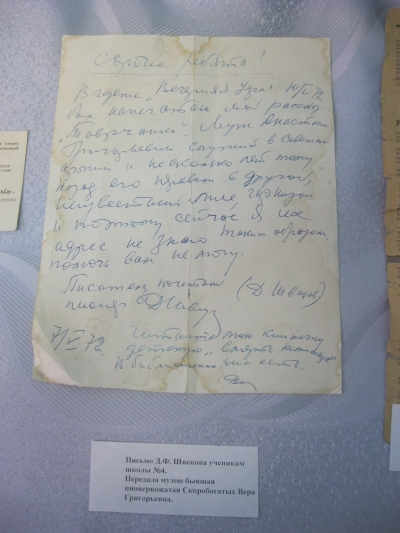 Дорогие ребята!
В газете „Вечерняя Уфа" 10/
был напечатан мой рассказ
Муж Анастасии
Григорьевны служил в Советской
армии и несколько лет тому
назад его перевели в другой,
неизвестный мне, гарнизон
и поэтому сейчас я их
адрес не знаю. Таким образом,
помочь вам не могу.
Писатель почётный (Д. Швецов)
пионер
7/V 72. Читайте мою книжечку
детскую „Смерть
В библиотеках она есть.
Письмо Д.Ф. Швецова ученикам
школы №4.
Передала музею бывшая
пионервожатая Скоробогатых Вера
Григорьевна.